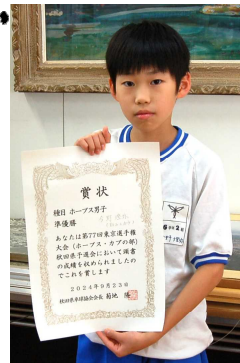 賞状
種目 ホープス男子
準優勝
あなたは第77回東京選手権
大会（ホープス・カブの部）
秋田県予選会において頭書
の成績を収められましたの
でこれを賞します
2024年9月23日
秋田県卓球協会会長 菊地 隆